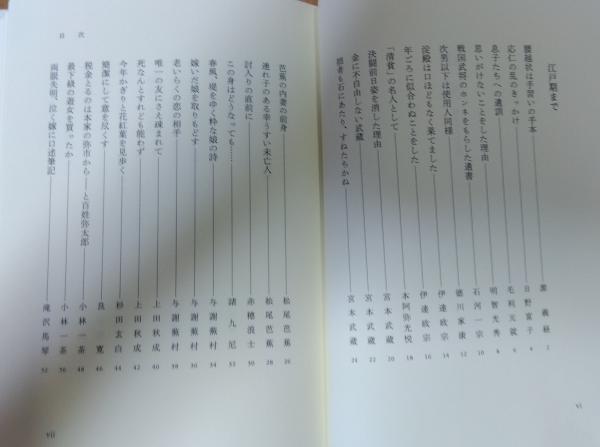 江戸期まで
腰越状は手習いの手本 源義経 2
応仁の乱のきっかけ 日野富子 4
息子たちへの遺訓 毛利元就 6
思いがけないことをした理由 明智光秀 8
戦国武将のホンネをもらした遺書 石河一宗 10
次男以下は使用人同様 徳川家康 12
淀殿は口ほどもなく果てました 伊達政宗 14
年ごろに似合わぬことをした 伊達政宗 16
「清貧」の名人として 本阿弥光悦 18
決闘前日姿を消した理由 宮本武蔵 20
金に不自由しない武蔵 宮本武蔵 22
拙者も石にあたり、すねたちかね 宮本武蔵 24
vi
目次
芭蕉の内妻の前身 松尾芭蕉 26
連れ子のある幸うすい未亡人 松尾芭蕉 28
討入りの直前に 赤穂浪士 30
この身はどうなっても…… 諸九尼 32
春風、堤をゆく粋な娘の詩 与謝蕪村 34
嫁いだ娘を取りもどす 与謝蕪村 36
老いらくの恋の相手 与謝蕪村 38
唯一の友にさえ疎まれて 上田秋成 40
死なんとすれども能わず 上田秋成 42
今年かぎりと花紅葉を見歩く 杉田玄白 44
簡潔にして意を尽くす 良寛 46
税金とるのは本家の弥市から――と百姓弥太郎 小林一茶 48
最下級の遊女を買ったか 小林一茶 50
両眼失明、泣く嫁に口述筆記 滝沢馬琴 52
vii